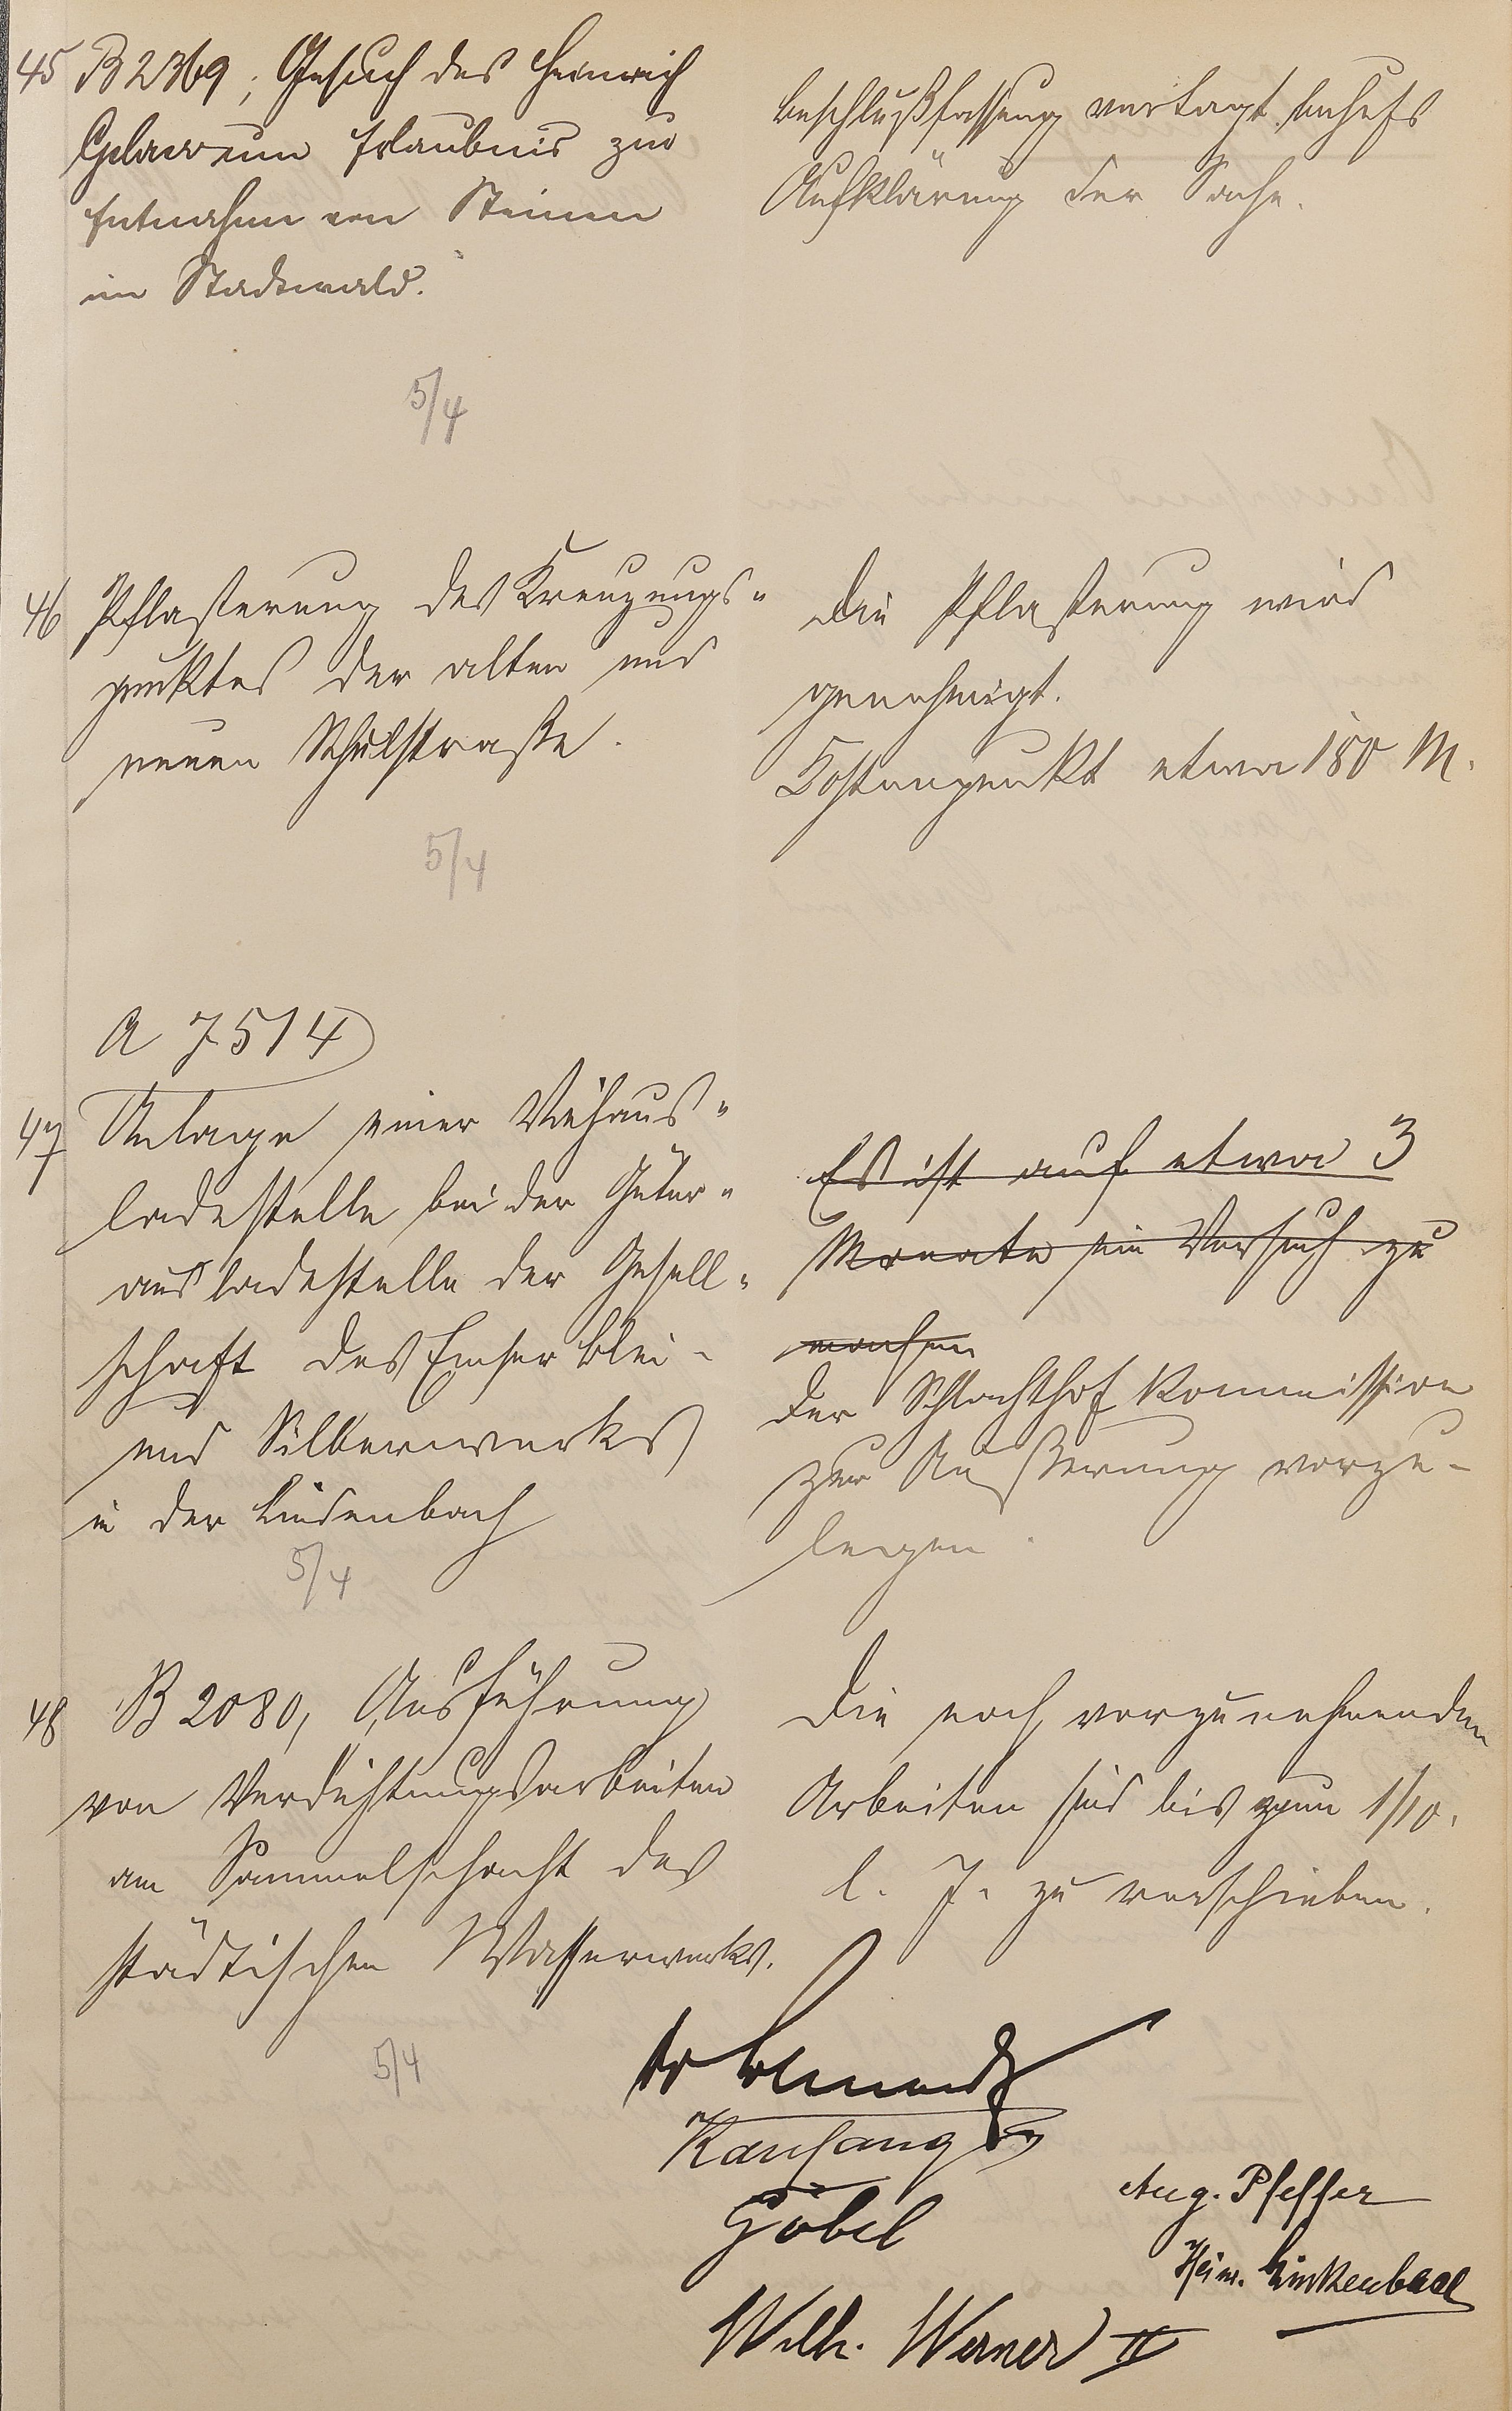 45 B 2369, Gesuch des Heinrich
um Erlaubnis zur
Entnahme von Steinen
im Stadtwald.
Beschlußfassung vertagt behufs
Aufklärung der Sache.
5/4
46 Pflasterung des Kreuzungs-
punktes der alten und
neuen Schulstraße.
Die Pflasterung wird
genehmigt.
Kostenpunkt etwa 180 M.
5/4
A 7514
47 Anlage einer Viehaus-
ladestelle bei der Güter-
ausladestelle der Gesell-
schaft des Emser Blei-
und Silberwerks
in der Lindenbach
5/4
Es ist auf etwa 3
Monate ein Versuch zu
machen
Der Schlachthof Kommission
zur Äußerung vorzu-
legen.
48 B 2080, Ausführung
von Verdichtungsarbeiten
am Sammelschacht des
städtischen Wasserwerks.
Die noch vorzunehmenden
Arbeiten sind bis zum 1/10.
l. J. zu verschieben.
5/4
Kauffang
Göbel
Aug. Pfeffer
Heinr. Linkenbach
Wilh. Werner II